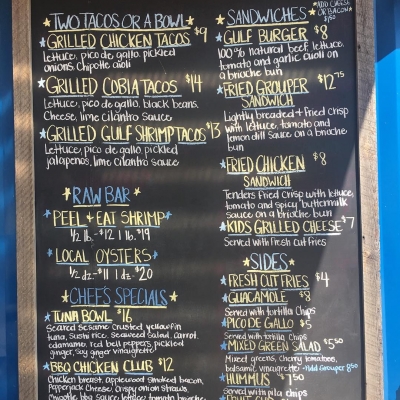 TWO TACOS OR A BOWL
GRILLED CHICKEN TACOS $9
lettuce, pico de gallo, pickled
onions, chipotle aioli
GRILLED COBIA TACOS $14
lettuce, pico de gallo, black beans,
cheese, lime cilantro sauce
GRILLED GULF SHRIMP TACOS $13
lettuce, pico de gallo pickled
jalapenos, lime cilantro sauce
RAW BAR
PEEL + EAT SHRIMP
1/2 lb.-$12 1 lb. $19
LOCAL OYSTERS
1/2 dz-$11 1 dz-$20
CHEF'S SPECIALS
TUNA BOWL $16
Seared sesame crusted yellowfin
tuna, sushi rice, seaweed salad, carrot,
edamame, red bell peppers, pickled
ginger, soy ginger vinaigrette
BBQ CHICKEN CLUB $12
Chicken breast, applewood smoked bacon,
Pepperjack cheese, crispy onion straws,
chipotle BBQ sauce, lettuce, tomato, brioche
SANDWICHES
ADD CHEESE
OR BACON
$1.50
GULF BURGER $8
100% natural beef, lettuce,
tomato and garlic aioli on
a brioche bun
FRIED GROUPER $12.75
SANDWICH
Lightly breaded + fried crisp
with lettuce, tomato and
lemon dill sauce on a brioche
bun
FRIED CHICKEN $8
SANDWICH
Tenders fried crisp with lettuce,
tomato and spicy buttermilk
sauce on a brioche bun
KIDS GRILLED CHEESE $7
Served with fresh cut fries
SIDES
FRESH CUT FRIES $4
GUACAMOLE $8
Served with tortilla chips
PICO DE GALLO $5
Served with tortilla chips
MIXED GREEN SALAD $5.50
Mixed greens, cherry tomatoes,
balsamic vinaigrette -Add Grouper 8.50
HUMMUS $7.50
Served with pita chips